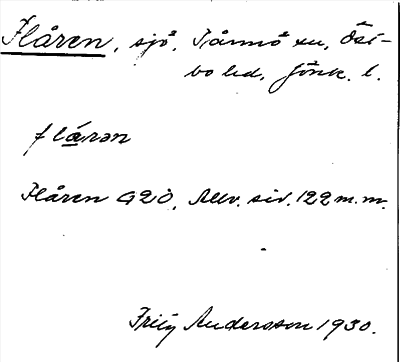 Flåren, sjö, Tånnö sn, Öst-
bo hd, Jönk. l.
flårən
Flåren GÖ, Allv. sid. 122 m.m.
Fritz Andersson 1930.